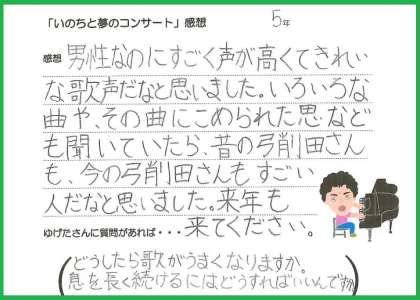 「いのちと夢のコンサート」感想
5年
感想 男性なのにすごく声が高くてきれい
な歌声だなと思いました。いろいろな
曲や、その曲にこめられた思など
も聞いていたら、昔の弓削田さん
も、今の弓削田さんもすごい
人だなと思いました。来年も
来てください。
ゆげたさんに質問があれば・・・
どうしたら歌がうまくなりますか。
息を長く続けるにはどうすればいいんで